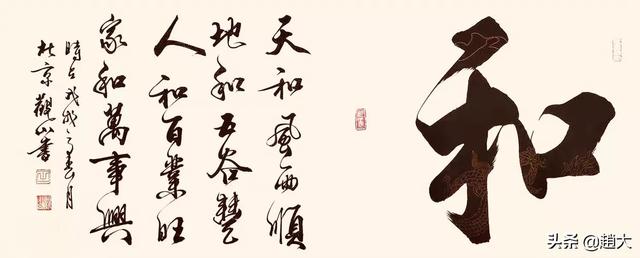 和
天和風雨順
地和五谷豐
人和百業旺
家和萬事興
時在戊戌春月
於京觀山書
头条 @趙大